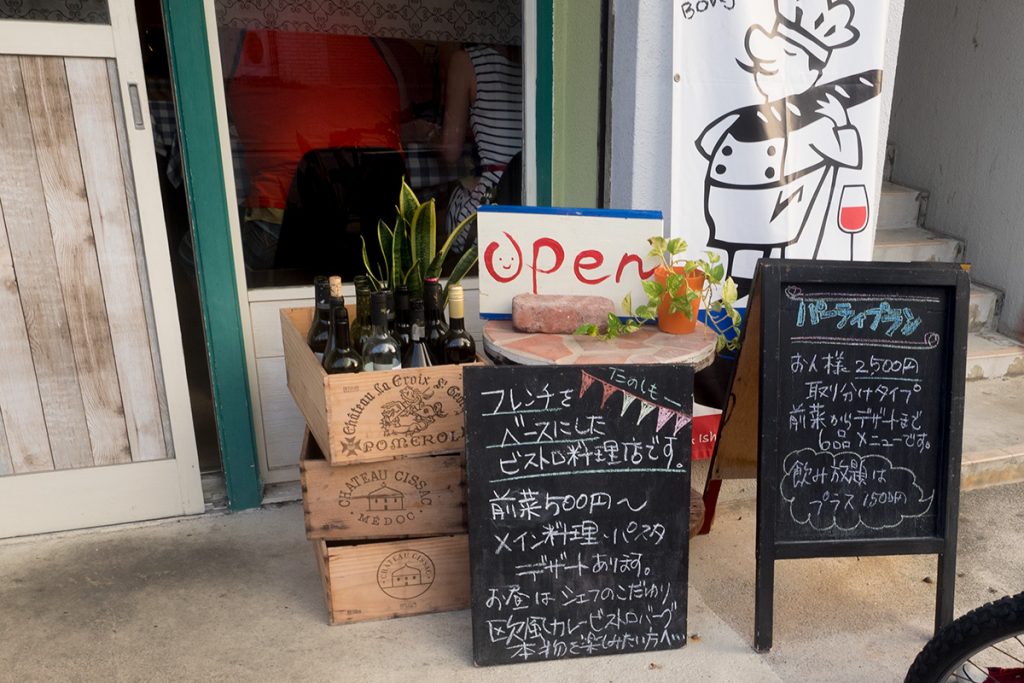 Open
Château La Croix St Geor
POMEROL
CHATEAU CISSAC
MEDOC
CHATEAU CISSAC
たのしもー
フレンチを
ベースにした
ビストロ料理店です。
前菜500円〜
メイン料理・パスタ
デザートあります。
お昼はシェフのこだわり
欧風カレー ビストロバーグ
本物を楽しみたい方へ…
パーティプラン
お人様 2,500円
取り分けタイプ
前菜からデザートまで
6品メニューです。
飲み放題は
プラス1500円